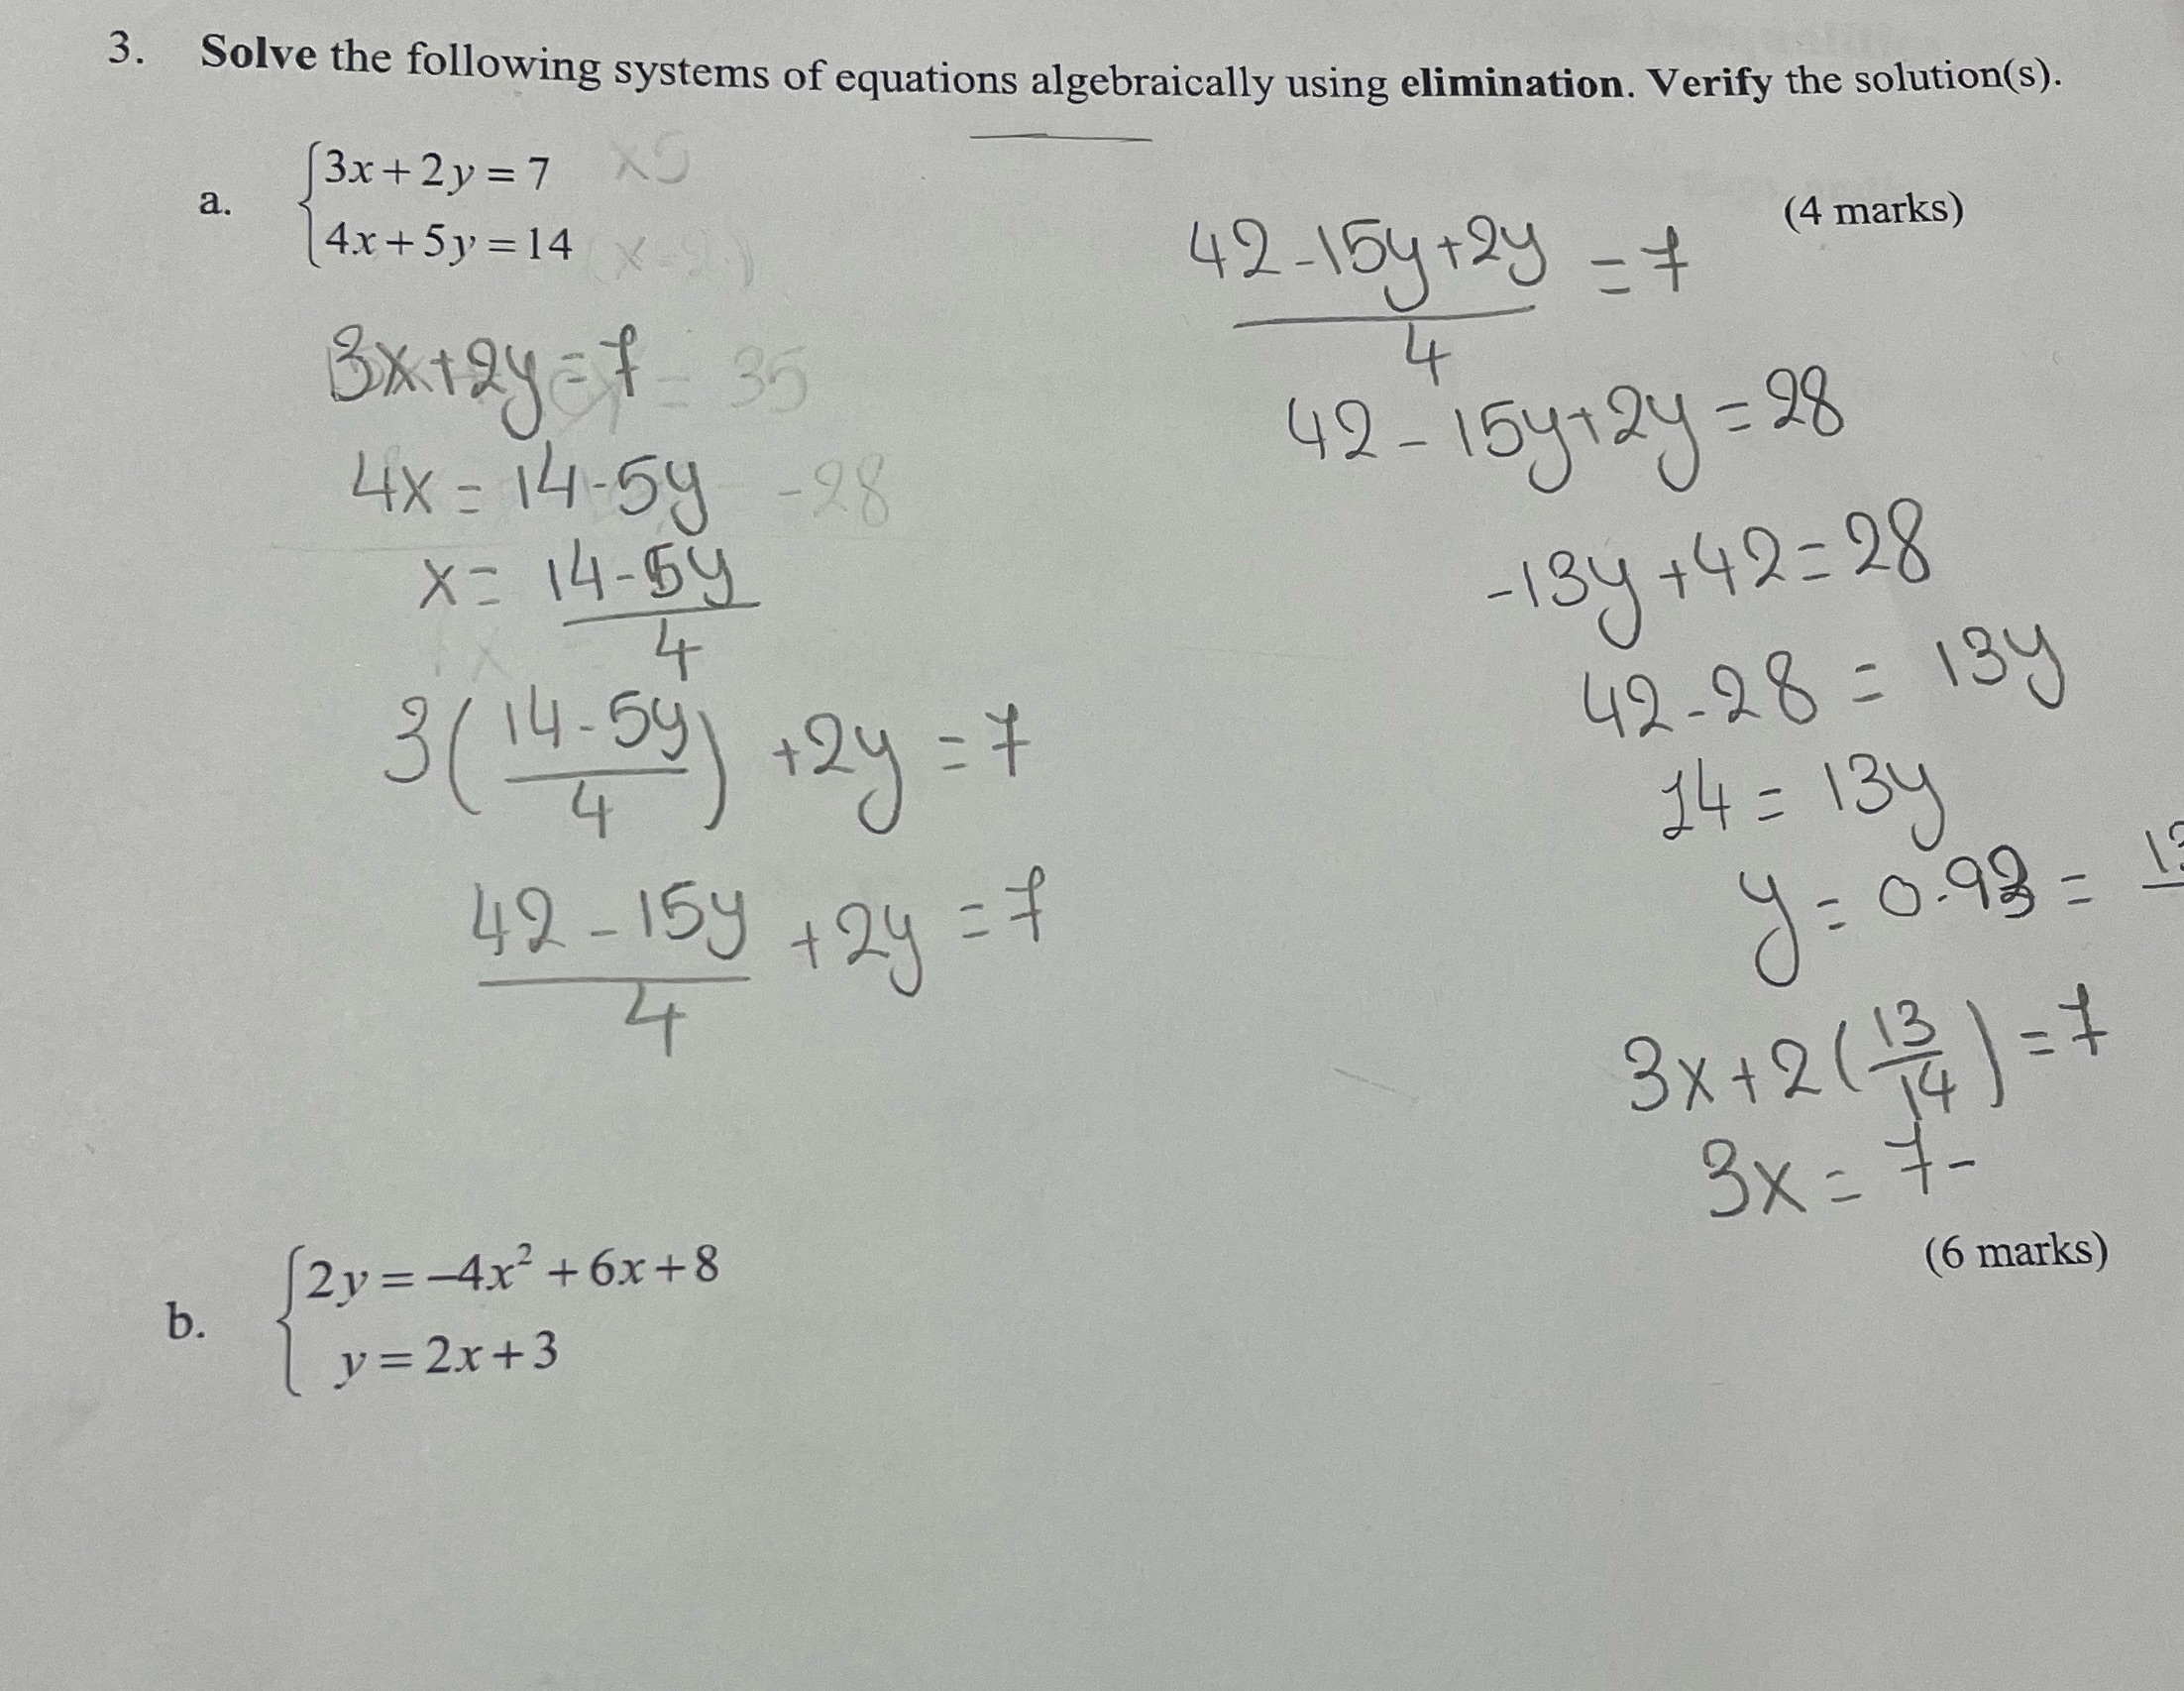 3. Solve the following systems of equations algebraically using elimination. Verify the solution(s).
a. {3x + 2y = 7 x5
4x + 5y = 14 (x-2)
(4 marks)
3x+2y=7 = 35
4x = 14-5y -28
x = (14-5y)/4
3((14-5y)/4) +2y = 7
(42-15y)/4 +2y = 7
(42-15y+2y)/4 = 7
42-15y+2y = 28
-13y+42=28
42-28 = 13y
14 = 13y
y = 0.93 =
3x+2(13/14) = 7
3x = 7-
b. {2y = –4x² + 6x + 8
y = 2x + 3
(6 marks)